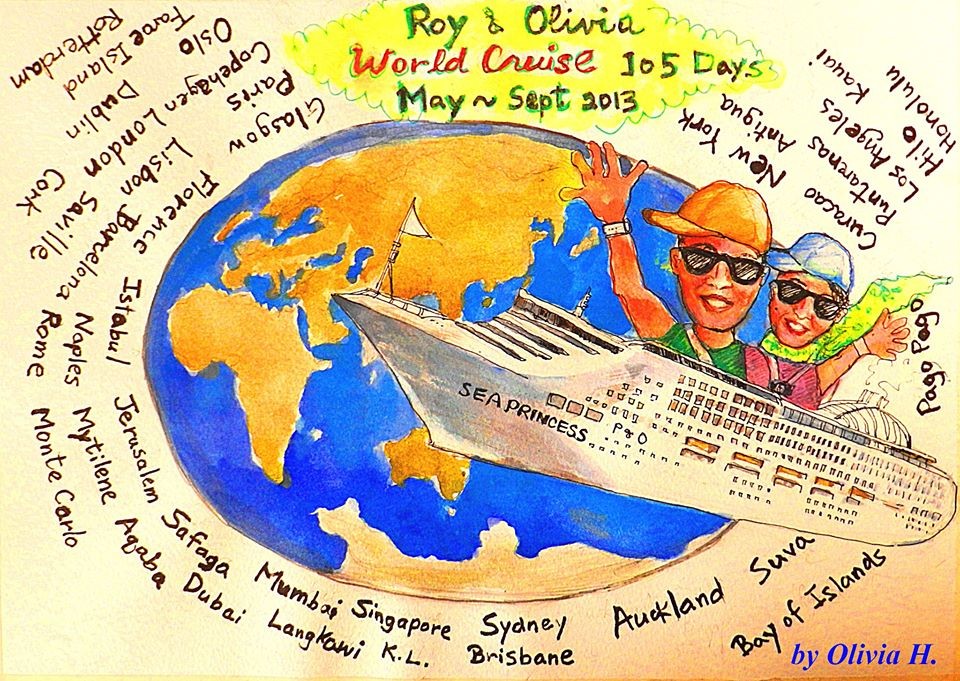 Roy & Olivia
World Cruise 105 Days
May ~ Sept 2013
Rotterdam
Faroe Island
Oslo
Dublin
Copehagen
Paris
Glasgow
London
Cork
Saville
Lisbon
Florence
Barcelona
Rome
Naples
Istabul
Monte Carlo
Mytilene
Jerusalem
Aqaba
Safaga
Dubai
Mumbai
Langkawi
Singapore
K.L.
Sydney
Brisbane
Auckland
Bay of Islands
Suva
Pago Pago
Honolulu
Hilo
Kauai
Los Angeles
Puntarenas
Curacao
Antigua
New York
SEA PRINCESS
P&O
by Olivia H.